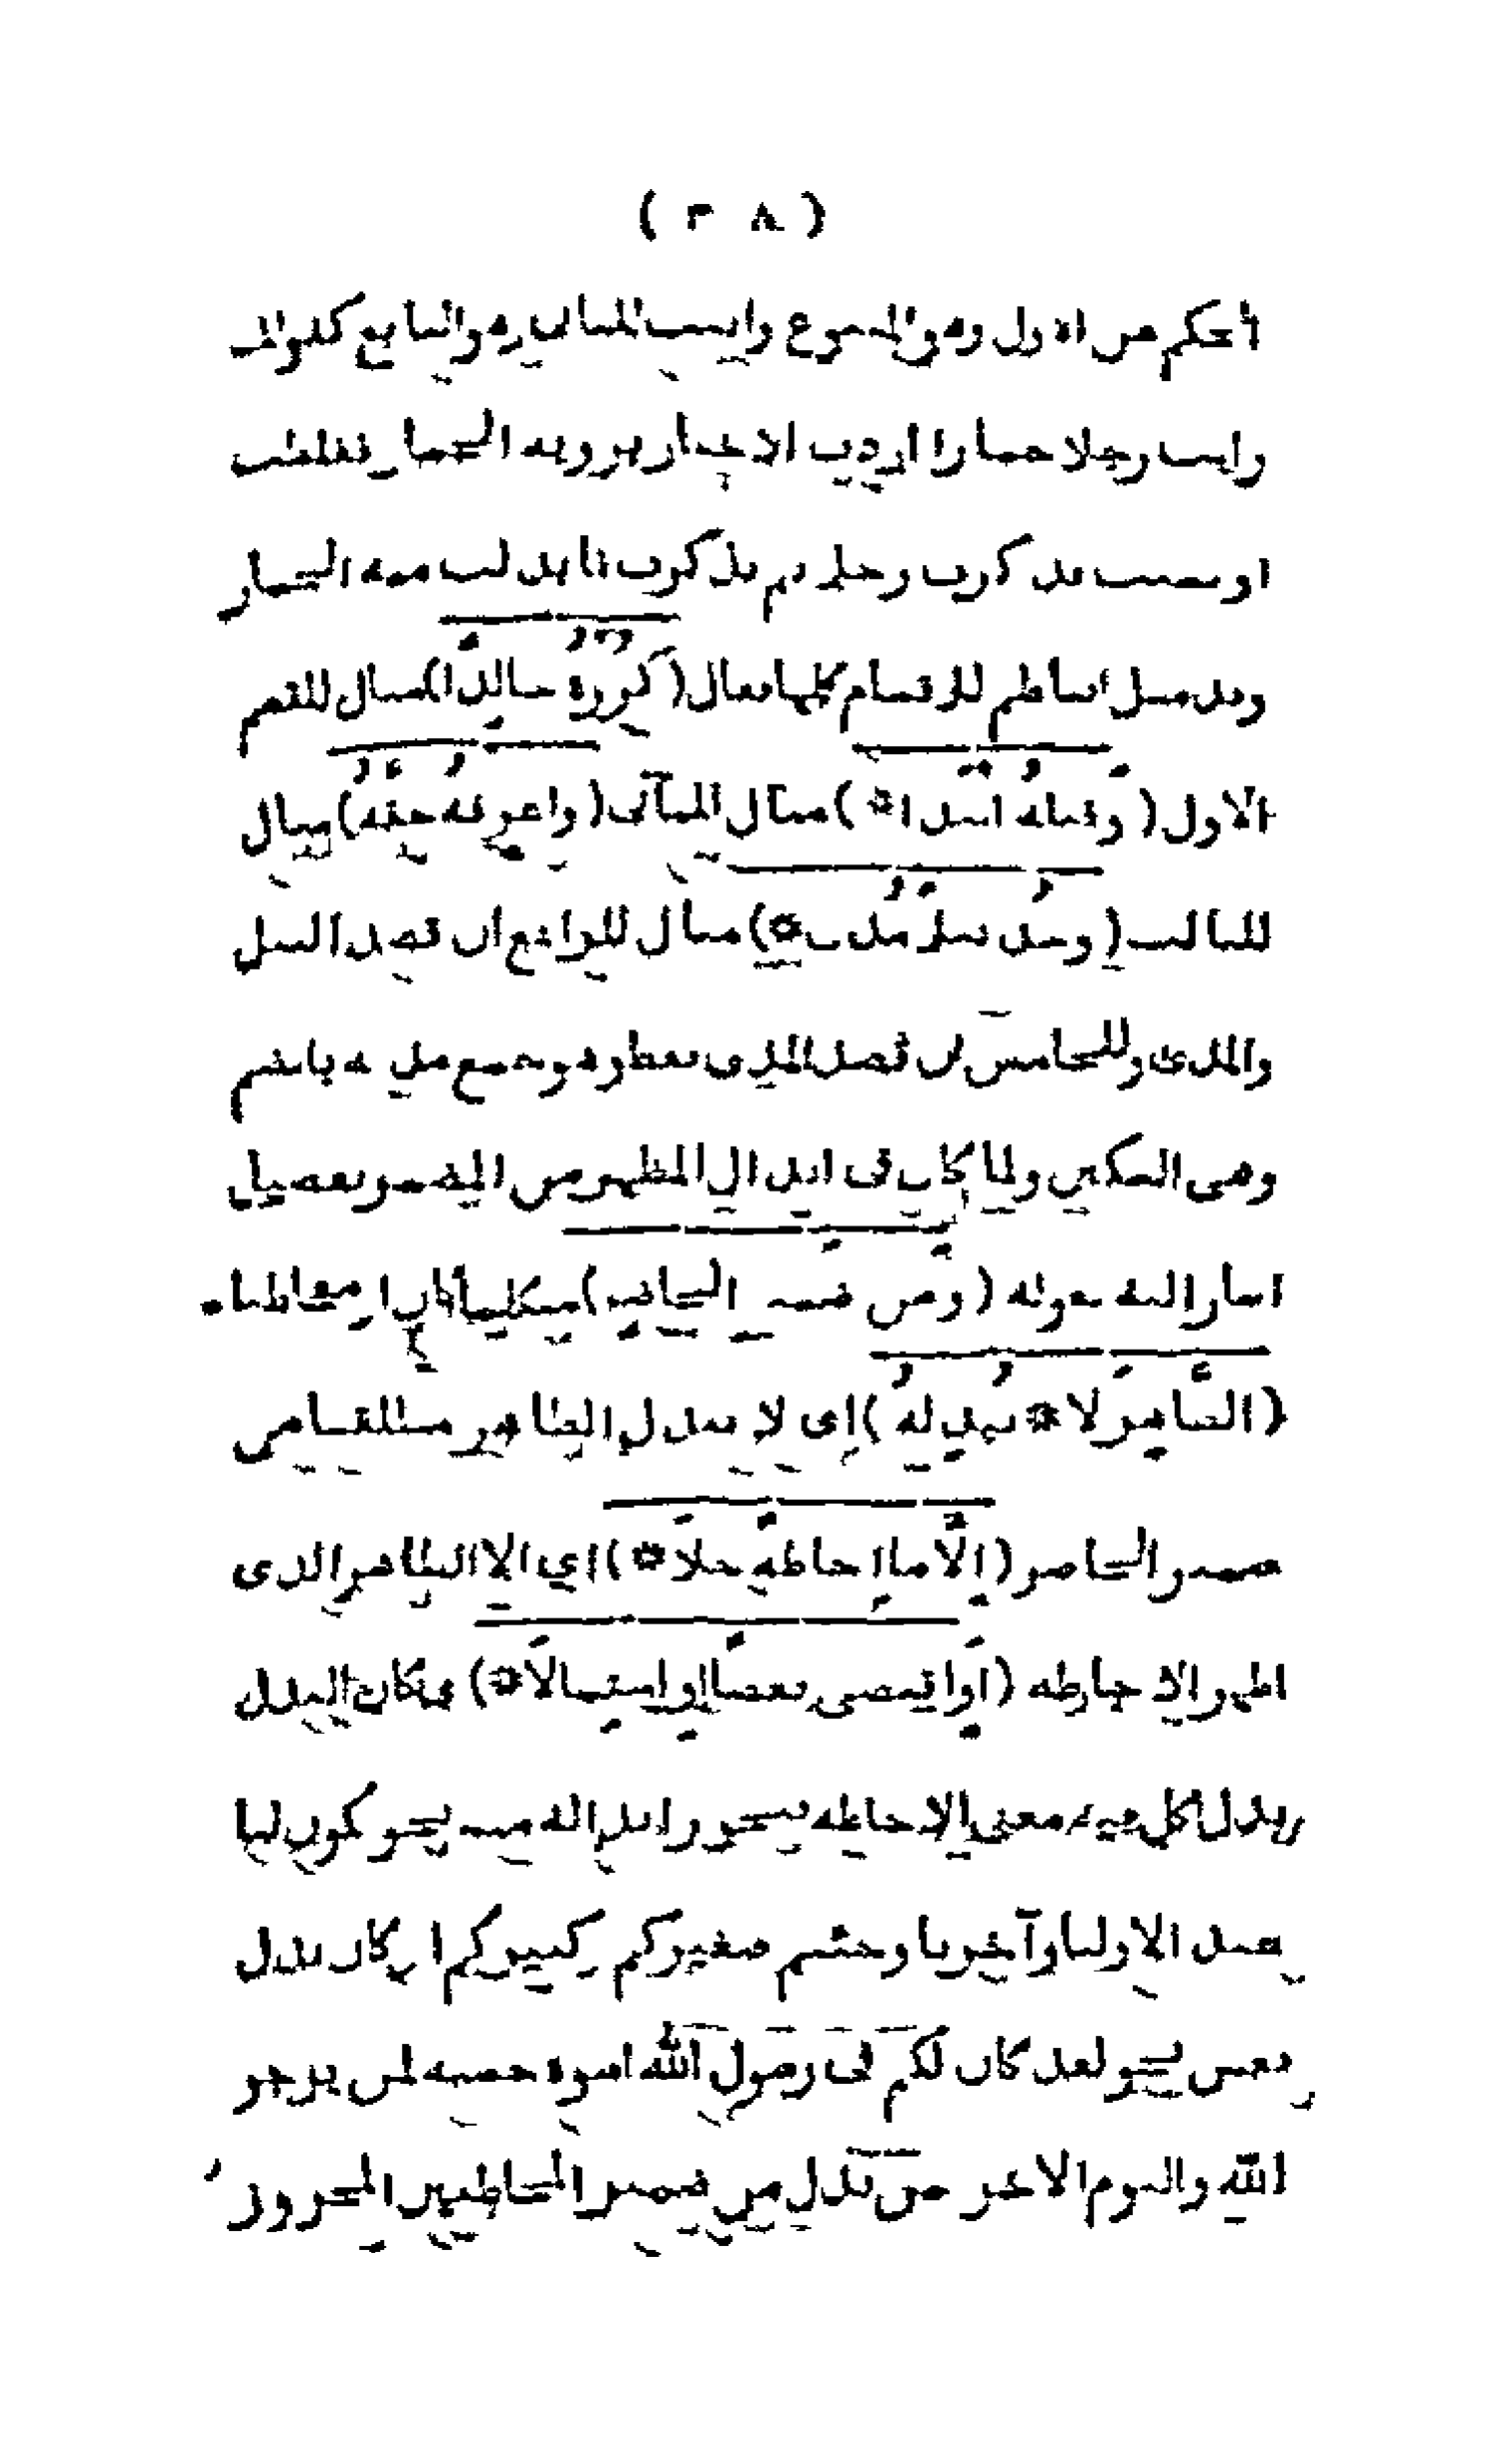 ( ٣٨ )
الحكم عن الاول وهو المتبوع واثبت للثانى وهو التابع كقولك
رايت رجلا حمارا اردت الاخبار برويه الحمار فغلطت
او نسيت فذكرت رجلا ثم تذكرت فابدلت منه الحمار
وقد مثل الناظم للاقسام كلها فقال (كزره خالدا) مثال للقسم
الاول (وقبله اليدا *) مثال للثانى (واعرفه حقه) مثال
للثالث (وخذ نبلا مدى *) مثال للرابع ان قصد النبل
والمدى وللخامس ان قصد المدى وهو جمع مدية بالضم
وهى السكين ولما كان فى ابدال المظهر من المضمر تفصيل
اشار اليه بقوله (ومن ضمير الحاضر) متكلما كان او مخاطبا
(الظاهر لا * تبدله) اى لا يبدل الظاهر مطلقا من
ضمير الحاضر (الا ما احاطه جلا *) اي الا الظاهر الذى
اظهر الاحاطه (او اقتضى بعضا او اشتمالا *) فكان البدل
بدل كل فيه معنى الاحاطه نحو ربنا انزل الله يحو تكون لنا
عيدا لاولنا وآخرنا وجئتم صغيركم وكبيركم او كان بدل
بعض نحو لقد كان لكم فى رسول الله اسوة حسنه لمن يرجو
الله واليوم الاخر فمن بدل من ضمير المخاطبين المجرور